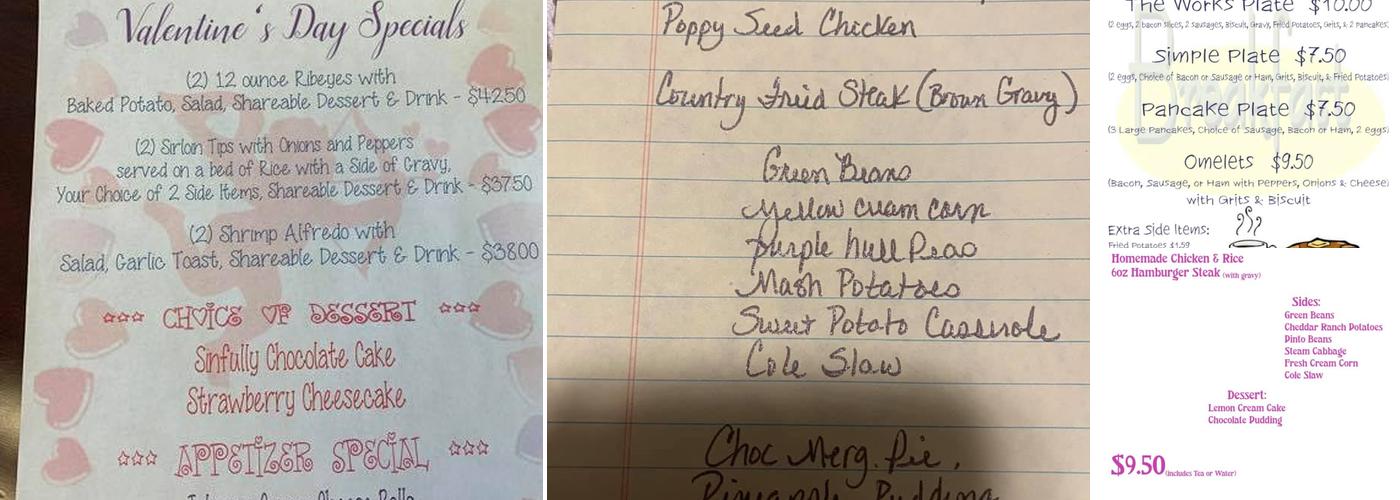 Valentine's Day Specials
(2) 12 ounce Ribeyes with
Baked Potato, Salad, Shareable Dessert & Drink - $42.50
(2) Sirloin Tips with Onions and Peppers
served on a bed of Rice with a Side of Gravy,
Your Choice of 2 Side Items, Shareable Dessert & Drink - $37.50
(2) Shrimp Alfredo with
Salad, Garlic Toast, Shareable Dessert & Drink - $38.00
CHOICE OF DESSERT
Sinfully Chocolate Cake
Strawberry Cheesecake
APPETIZER SPECIAL
Poppy Seed Chicken
Country Fried Steak (Brown Gravy)
Green Beans
Yellow cream corn
purple hull Peas
Mash Potatoes
Sweet Potato Casserole
Cole Slaw
Choc Merg. Pie,
Pineapple Pudding
The Works Plate $10.00
(2 eggs, 2 bacon slices, 2 sausages, Biscuit, Gravy, Fried Potatoes, Grits, & 2 pancakes)
Simple Plate $7.50
(2 eggs, Choice of Bacon or Sausage or Ham, Grits, Biscuit, & Fried Potatoes)
Pancake Plate $7.50
(3 Large Pancakes, Choice of Sausage, Bacon or Ham, 2 eggs)
Breakfast
Omelets $9.50
(Bacon, Sausage, or Ham with Peppers, Onions & Cheese)
with Grits & Biscuit
Extra Side Items:
Fried Potatoes $1.59
Homemade Chicken & Rice
6oz Hamburger Steak (with gravy)
Sides:
Green Beans
Cheddar Ranch Potatoes
Pinto Beans
Steam Cabbage
Fresh Cream Corn
Cole Slaw
Dessert:
Lemon Cream Cake
Chocolate Pudding
$9.50 (Includes Tea or Water)